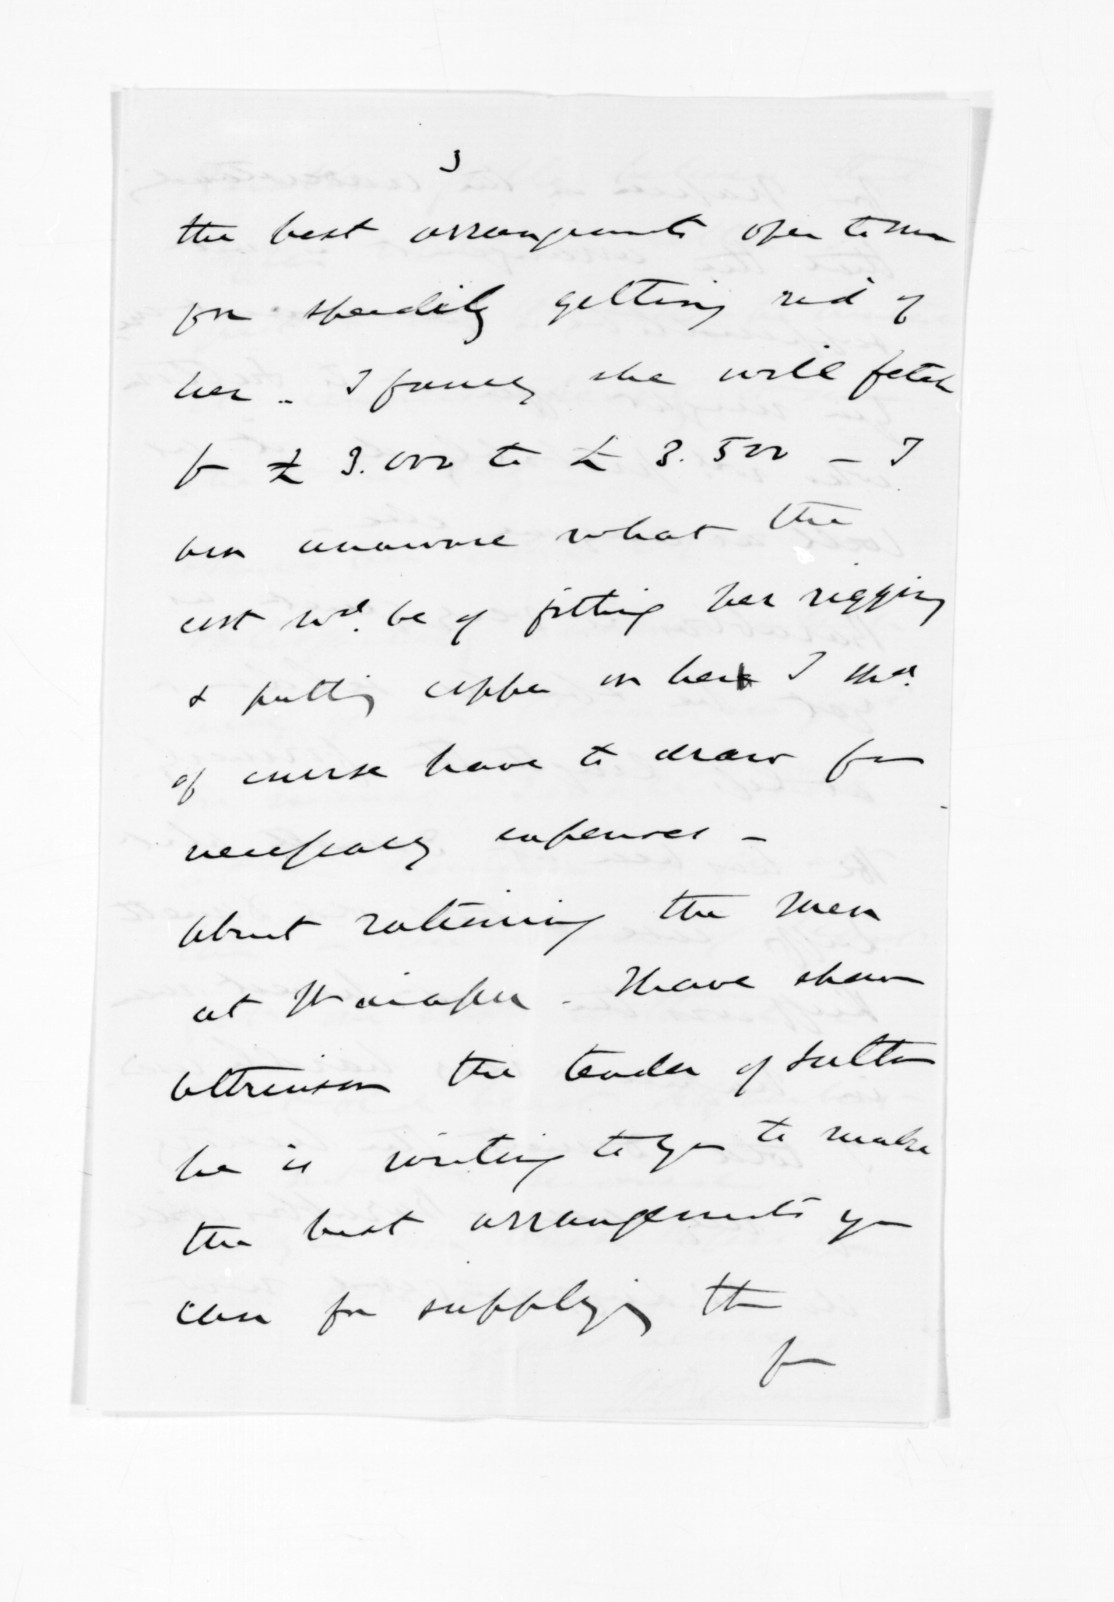 3
the best arrangements open to me
for speedily getting rid of
her. I fancy she will fetch
fr £3.000 to £3.500 - I
am unaware what the
cost wd. be of fitting her rigging
& putting copper on her I shd.
of course have to draw for
necessary expenses -
About rationing the men
at Waiapu - I have shewn
Atkinson the tender of
he is writing to you to make
the best arrangements you
can for supplying the
for